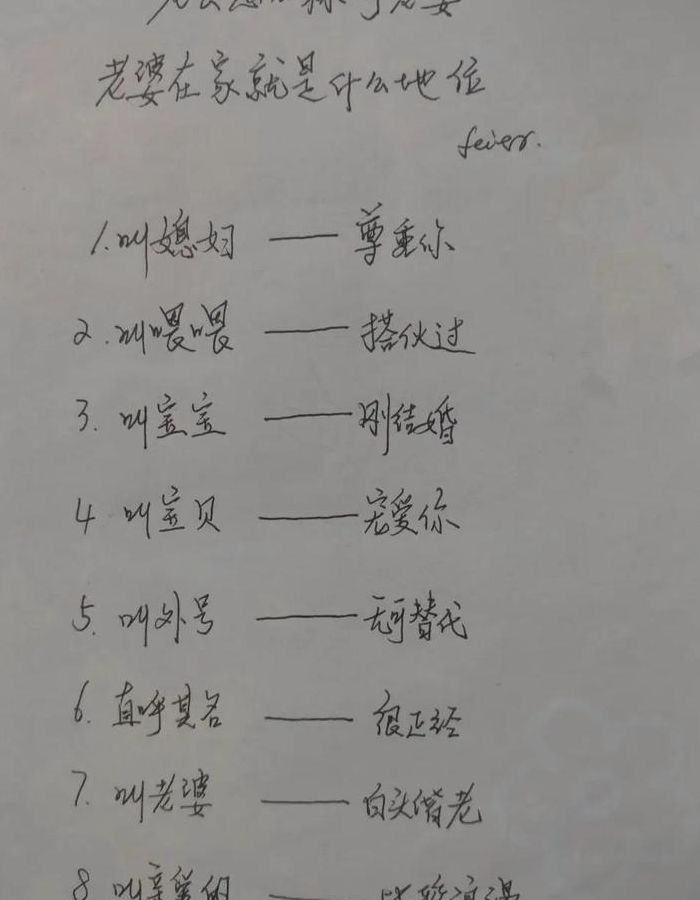 老公怎么称呼老婆
老婆在家就是什么地位
feier.
1.叫媳妇——尊重你
2.叫喂喂——搭伙过
3.叫宝宝——刚结婚
4 叫宝贝——宠爱你
5.叫外号——无可替代
6.直呼其名——很正经
7.叫老婆——白头偕老
8 叫亲爱的——比较浪漫